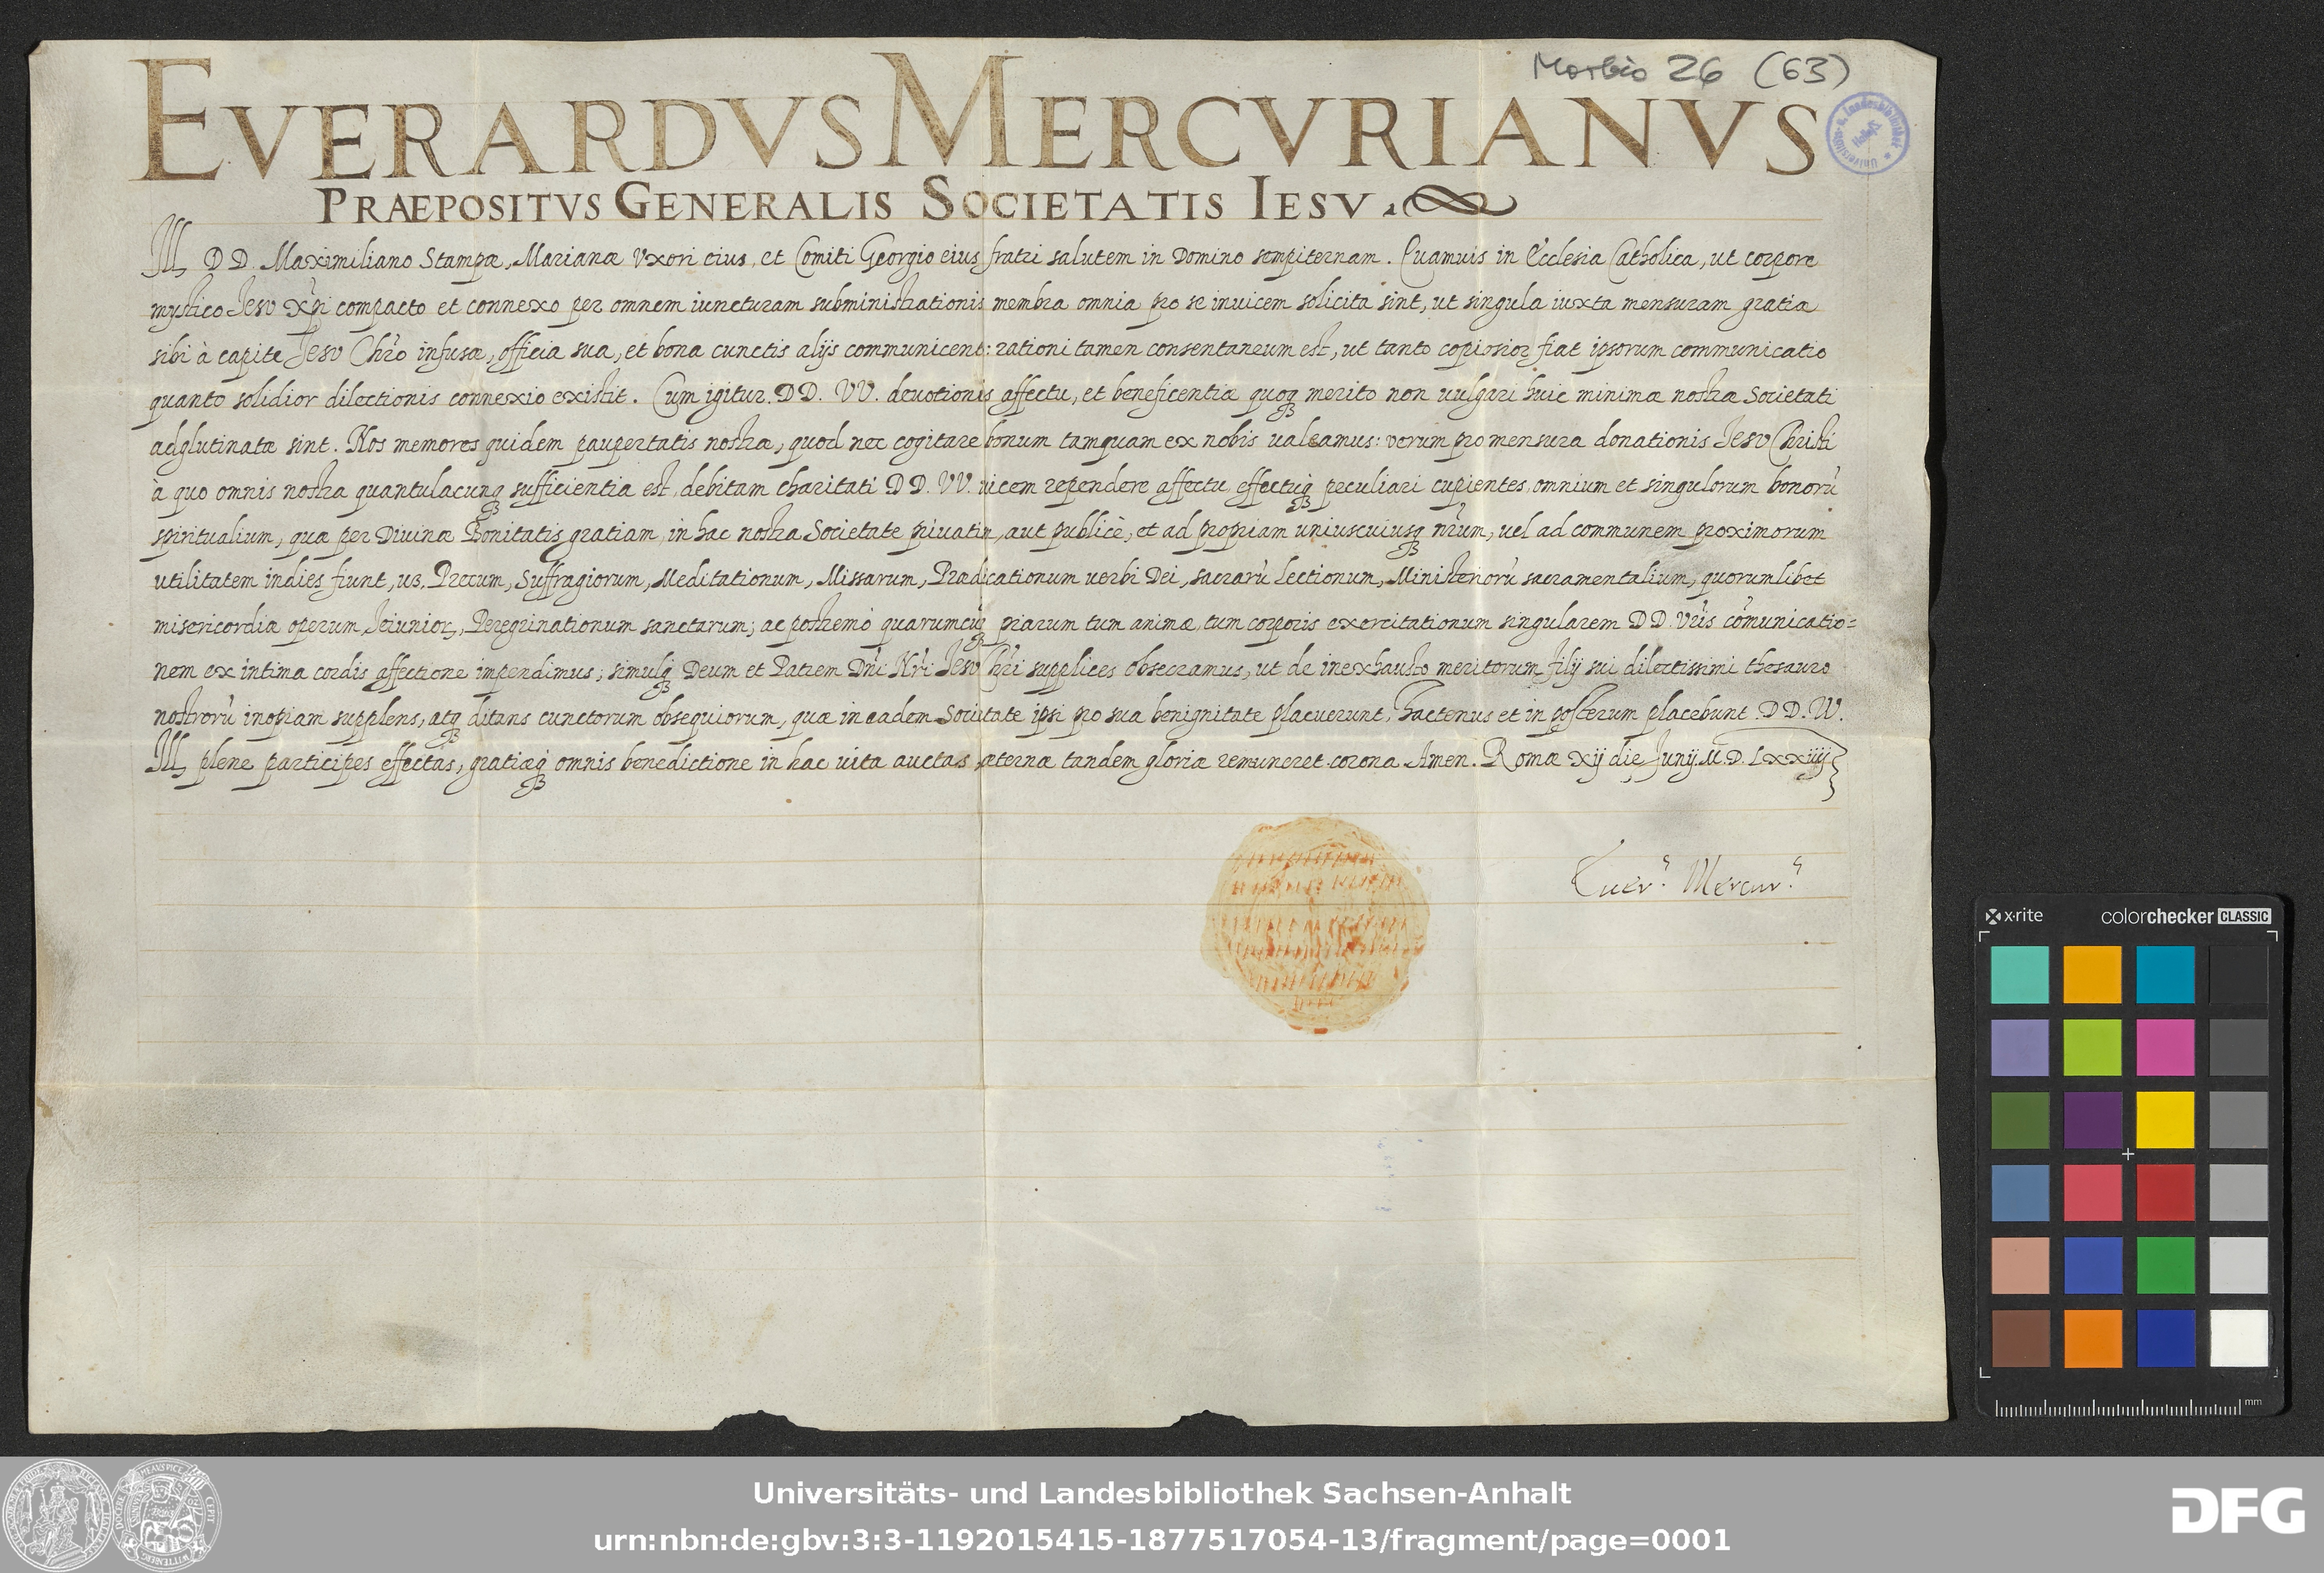 Morbio 26 (63)
EVERARDVS MERCVRIANVS
PRAEPOSITVS GENERALIS SOCIETATIS IESV.
Ill. DD. Maximiliano Stampæ, Marianæ Vxori eius, et Comiti Georgio eius fratri salutem in Domino sempiternam. Quamuis in Ecclesia Catholica, ut corpore
mystico Iesv Xp̃i compacto et connexo per omnem iuncturam subministrationis membra omnia pro se inuicem solicita sint, ut singula iuxta mensuram gratiæ
sibi à capite Iesv Chr̃o infusæ, officia sua, et bona cunctis alijs communicent: rationi tamen consentaneum est, ut tanto copiosior fiat ipsorum communicatio
quanto solidior dilectionis connexio existit. Cum igitur DD. VV. deuotionis affectu, et beneficentiæ quoq merito non uulgari huic minimæ nostræ Societati
adglutinatæ sint. Nos memores quidem paupertatis nostræ, quod nec cogitare bonum tamquam ex nobis ualeamus: verum pro mensura donationis Iesv Christi
à quo omnis nostra quantulacunq sufficientia est, debitam charitati DD. VV. uicem rependere affectu, effectuq peculiari cupientes, omnium et singulorum bonorũ
spiritualium, quæ per Diuinæ Bonitatis gratiam, in hac nostra Societate priuatim, aut publicè, et ad propriam uniuscuiusq nr̃um, uel ad communem proximorum
utilitatem indies fiunt, uz. Precum, Suffragiorum, Meditationum, Missarum, Prædicationum uerbi Dei, sacrarũ Lectionum, Ministeriorũ sacramentalium, quorumlibet
misericordiæ operum, Ieiunior., Peregrinationum sanctarum; ac postremò quarumcuq piarum tum animæ, tum corporis exercitationum singularem DD. Vr̃is cõmunicatio=
nem ex intima cordis affectione impendimus; simulq Deum et Patrem Dñi Nr̃i Iesv Chr̃i supplices obsecramus, ut de inexhausto meritorum filij sui dilectissimi thesauro
nostrorũ inopiam supplens, atq ditans cunctorum obsequiorum, quæ in eadem Societate ipsi pro sua benignitate placuerunt, hactenus et in posterum placebunt DD. VV.
Ill. plene participes effectas, gratiæq omnis benedictione in hac uita auctas æternæ tandem gloriæ remuneret corona Amen. Romæ xij die Junij M.D.Lxxiiij
Euer.s Mercur.s
Universitäts- u. Landesbibliothek
Halle
x·rite colorchecker CLASSIC
mm
Universitäts- und Landesbibliothek Sachsen-Anhalt
urn:nbn:de:gbv:3:3-1192015415-1877517054-13/fragment/page=0001
DFG